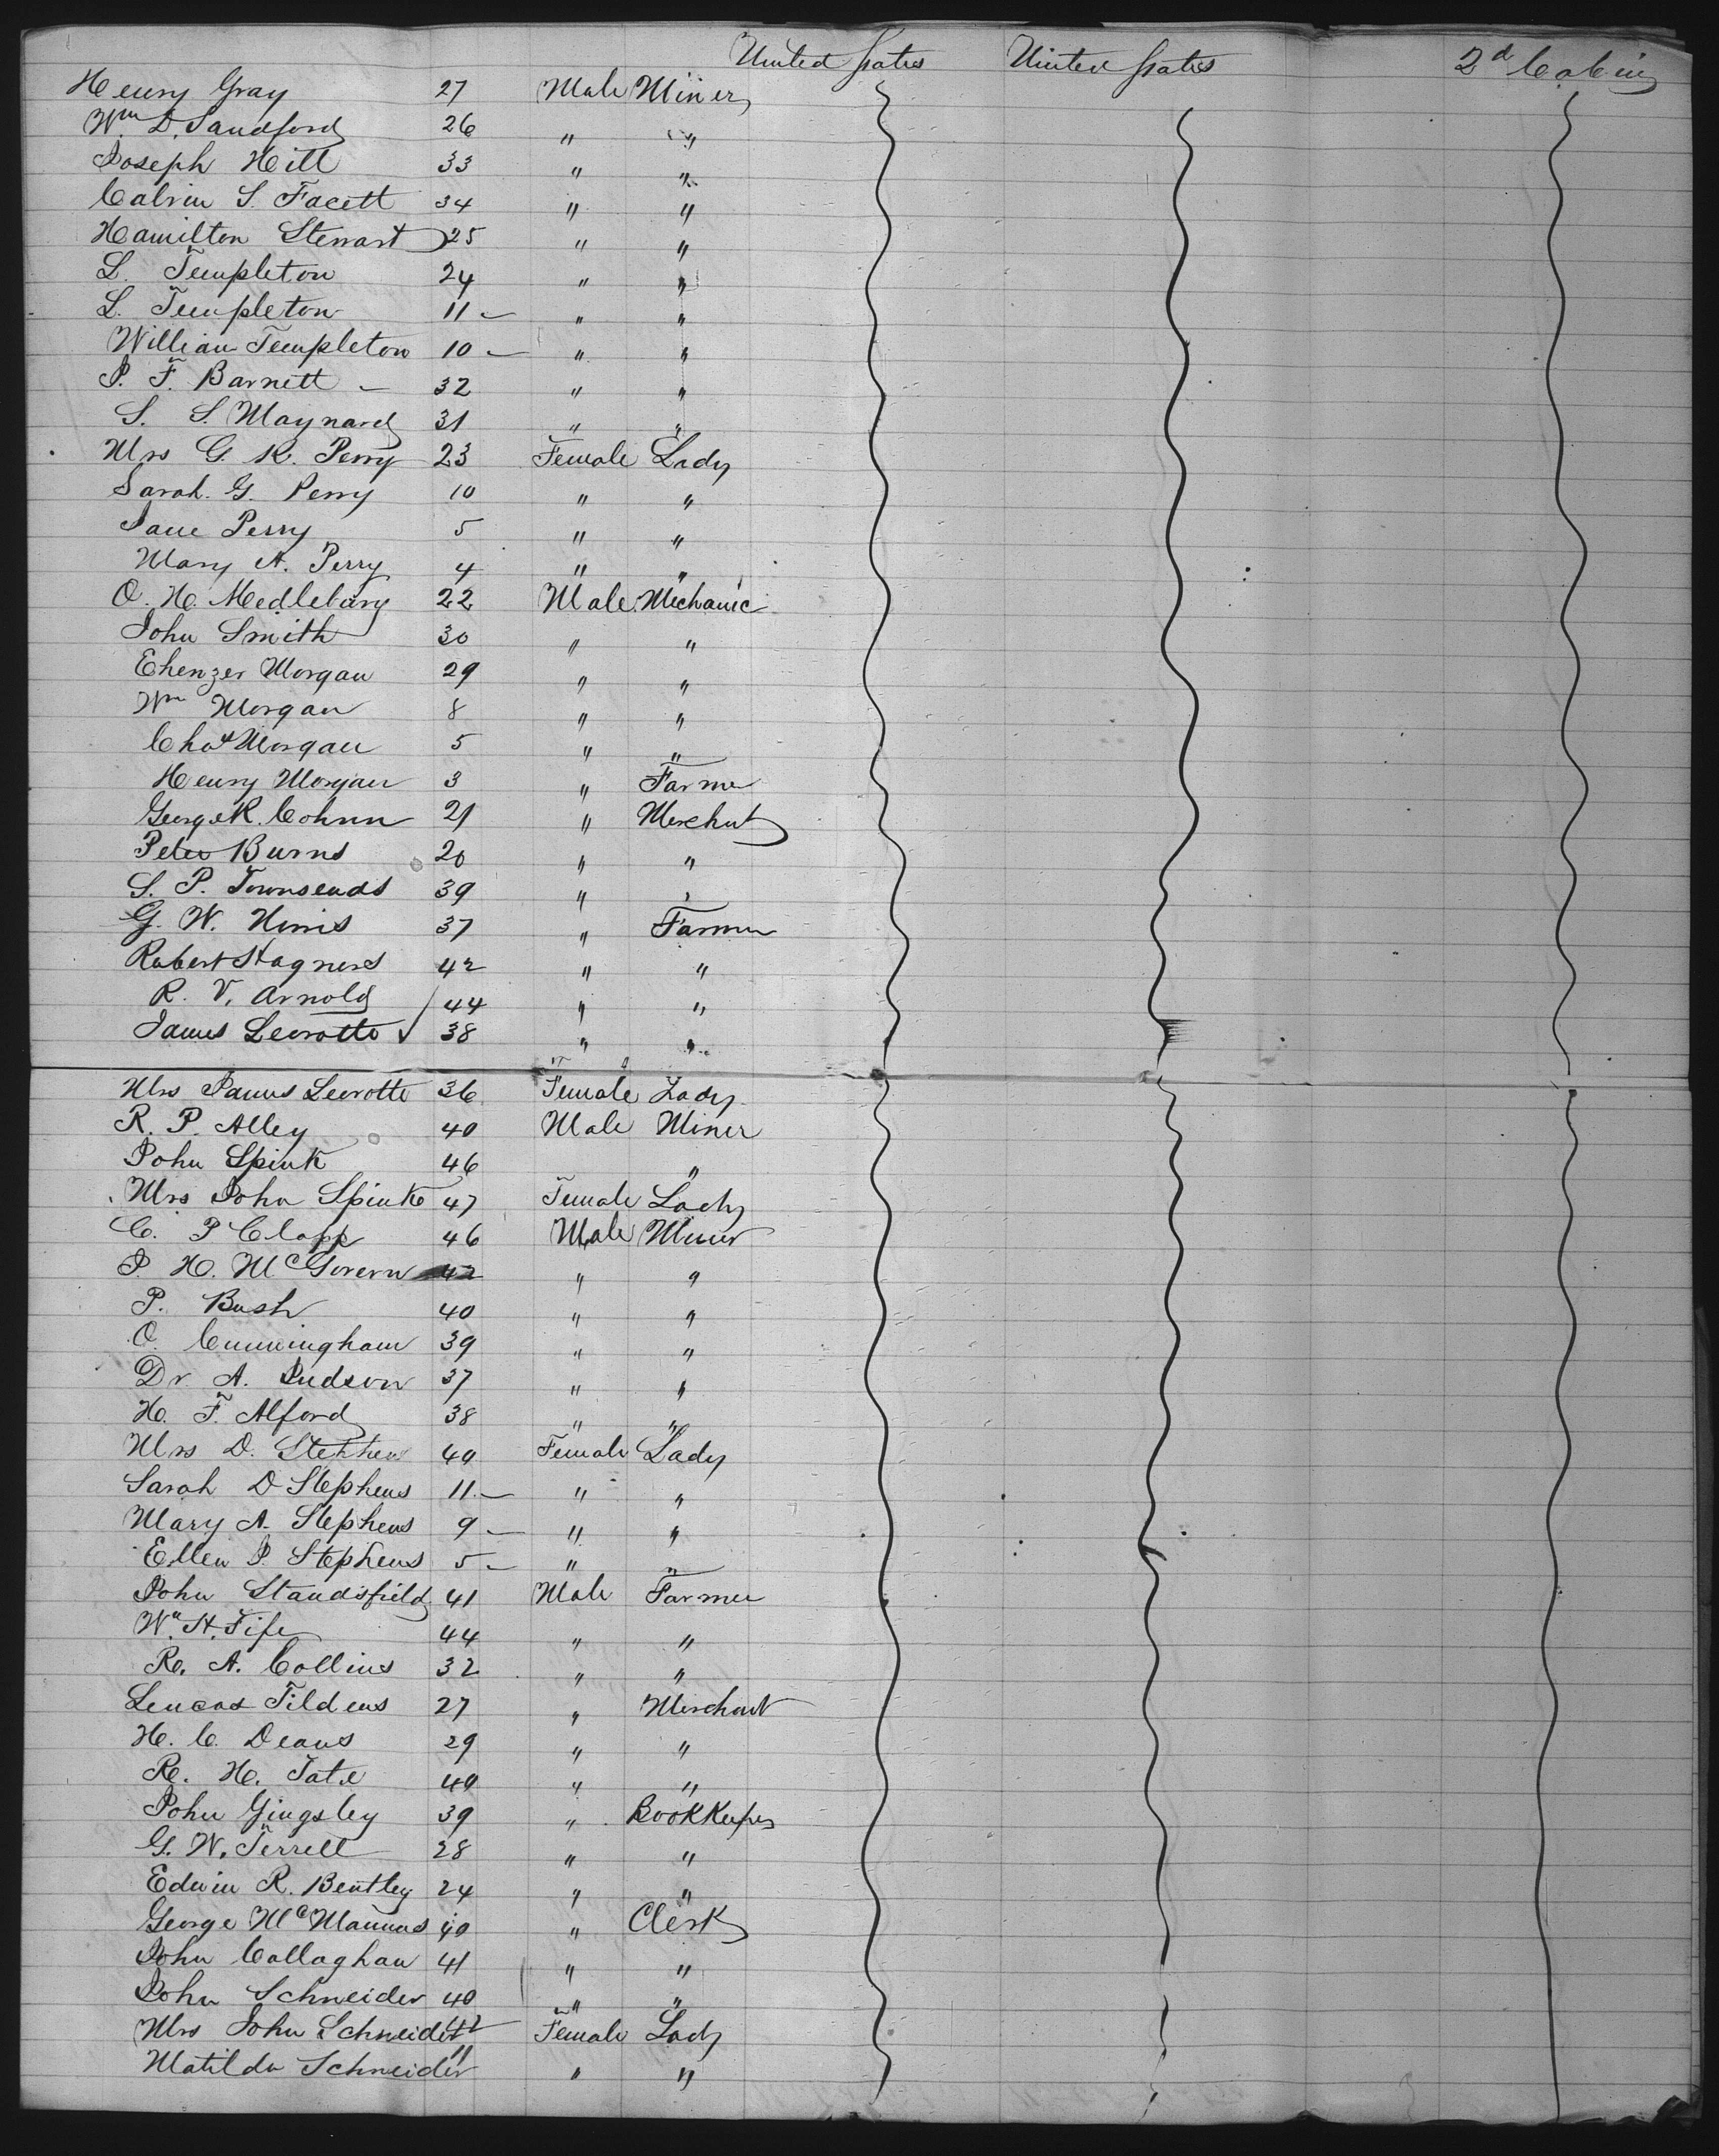 United States United States 2d Cabin
Henry Gray 27 Male Miner
Wm D. Sandford 26 " "
Joseph Hill 33 " "
Calvin S. Facett 34 " "
Hamilton Stewart 25 " "
L. Templeton 24 " "
L. Templeton 11 - " "
William Templeton 10 - " "
P. F. Barnett - 32 " "
S. S. Maynard 31 " "
Mrs G. K. Perry 23 Female Lady
Sarah. G. Perry 10 " "
Jane Perry 5 " "
Mary A. Perry 4 " "
O. H. Medlebury 22 Male Mechanic
John Smith 30 " "
Ebenzer Morgan 29 " "
Wm Morgan 8 " "
Chas Morgan 5 " "
Henry Morgan 3 " Farmer
George R. Cohnn 21 " Merchnt
Peter Burns 20 " "
S. P. Townsends 39 " "
G. W. Norris 37 " Farmer
Robert Stagners 42 " "
R. V. Arnold 44 " "
James Leorotte 38 " "
Mrs James Leorotte 36 Female Lady
R. P. Alley 40 Male Miner
John Spink 46 "
Mrs John Spink 47 Female Lady
C. P Clapp 46 Male Miner
J. H. McGovern 42 " "
P. Bush 40 " "
O. Cunningham 39 " "
Dr. A. Judson 37 " "
H. F. Alford 38 " "
Mrs D. Stephens 40 Female Lady
Sarah D Stephens 11 - " "
Mary A. Stephens 9 - " "
Ellen J. Stephens 5 - " "
John Standsfield 41 Male Farmer
Wm H. Fife 44 " "
R. A. Collins 32 " "
Leucas Tildens 27 " Merchant
H. C. Deans 29 " "
R. H. Tate 40 " "
John Gingsley 39 " BookKeeper
G. W. Terrell 28 " "
Edwin R. Bentley 24 " "
George McMannus 40 " Clerk
John Callaghan 41 " "
John Schneider 40 " "
Mrs John Schneider 42 Female Lady
Matilda Schneider 11 " "